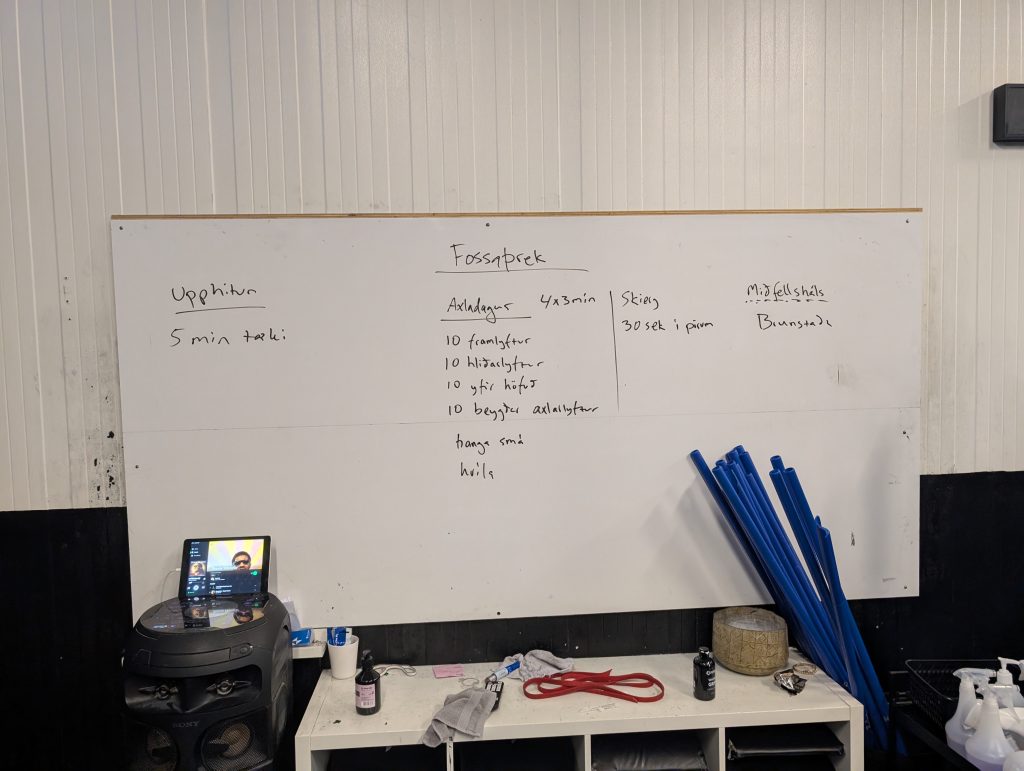 Fossaþrek
Upphitun
5 min tæki
Axladagur 4x3min
10 framlyftur
10 hliðaslyftur
10 yfir höfuð
10 beygðar axlarlyftur
hanga smá
hvíla
Skierg
30 sek í pörum
Miðfellsháls
Brunstaða
SONY